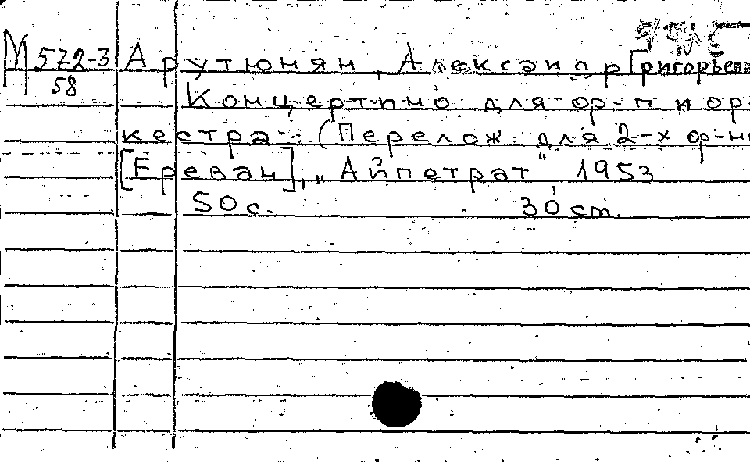 М 572-3
58
Арутюнян, Александр [Григорьеви
Концертино для ф-п и ор-
кестра. (Перелож. для 2-х ф-п
[Ереван], „Айпетрат" 1953
50 с. 30 cm.